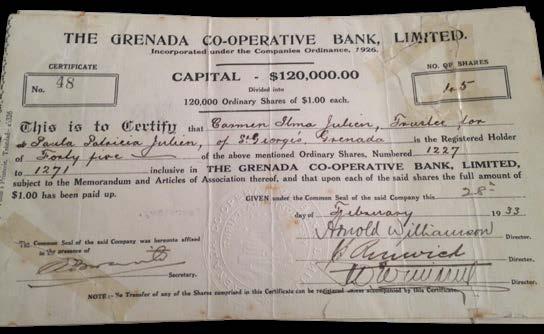 THE GRENADA CO-OPERATIVE BANK, LIMITED.
Incorporated under the Companies Ordinance, 1926.
CERTIFICATE
No. 48
CAPITAL - $120,000.00
Divided into
120,000 Ordinary Shares of $1.00 each.
NO. OF SHARES
45
This is to Certify that Carmen Ilma Julien, Trustee for
Paula Patricia Julien, of St George's, Grenada is the Registered Holder
of Forty five of the above mentioned Ordinary Shares, Numbered 1227
to 1271 inclusive in THE GRENADA CO-OPERATIVE BANK, LIMITED,
subject to the Memorandum and Articles of Association thereof, and that upon each of the said shares the full amount of
$1.00 has been paid up.
GIVEN under the Common Seal of the said Company this 28th
day of February 1933
The Common Seal of the said Company was hereunto affixed
in the presence of
Arnold Williamson
Director.
Director.
Secretary.
Director.
NOTE:- No Transfer of any of the Shares comprised in this Certificate can be registered unless accompanied by this Certificate.